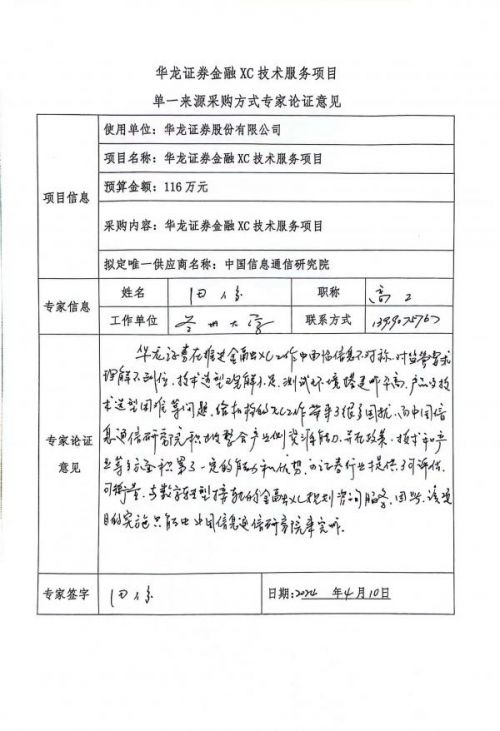 华龙证券金融 XC 技术服务项目
单一来源采购方式专家论证意见
项目信息
使用单位：华龙证券股份有限公司
项目名称：华龙证券金融 XC 技术服务项目
预算金额：116 万元
采购内容：华龙证券金融 XC 技术服务项目
拟定唯一供应商名称：中国信息通信研究院
专家信息
姓名 田 职称 高工
工作单位 兰州大学 联系方式
专家论证
意见
华龙证券在推进金融XC工作中面临信息不对称，对监管要求
理解不到位，技术选型理解不足，测试环境搭建成本高，产品及技
术选型困难等问题，给机构的XC工作带来了很多困扰，而中国信
息通信研究院积极整合产业侧资源能力，并在政策、技术和产
业等方面积累了一定的能力和优势，可证券行业提供了可评估、
可衡量、与数字转型搭配的金融XC规划咨询服务，因此，该项
目的实施只能由中国信息通信研究院来完成。
专家签字 田
日期：2024 年 4 月 10 日